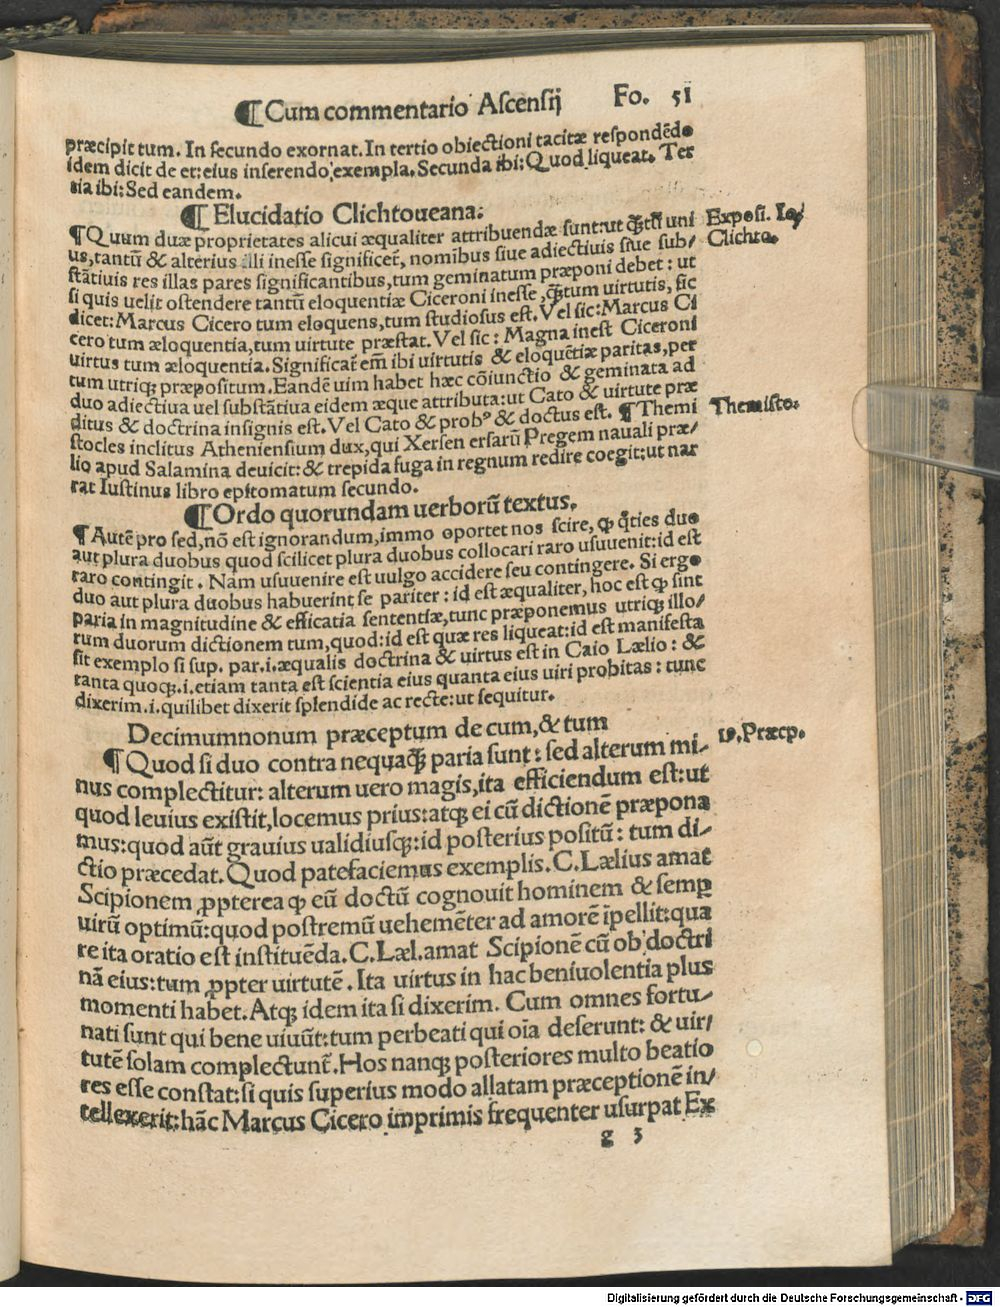 ¶Cum commentario Ascensij Fo. 51
præcipit tum. In secundo exornat. In tertio obiectioni tacitæ respondēdo
idem dicit de et: eius inserendo exempla. Secunda ibi: Quod liqueat. Ter
tia ibi: Sed eandem.
¶ Elucidatio Clichtoueana:
¶Quum duæ proprietates alicui æqualiter attribuendæ sunt: ut q̄tū uni Exposi. Io/
us, tantū & alterius illi inesse significet̄, nomibus siue adiectiuis siue sub/ Clichto.
stātiuis res illas pares significantibus, tum geminatum præponi debet: ut
si quis uelit ostendere tantū eloquentiæ Ciceroni inesse, q̄tum uirtutis, sic
dicet: Marcus Cicero tum eloquens, tum studiosus est. Vel sic: Marcus Ci
cero tum æloquentia, tum uirtute præstat. Vel sic: Magna inest Ciceroni
uirtus tum æloquentia. Significat̄ em̄ ibi uirtutis & eloquētiæ paritas, per
tum utriqȝ præpositum. Eandē uim habet hæc cōiunctio & geminata ad
duo adiectiua uel substātiua eidem æque attributa: ut Cato & uirtute præ
ditus & doctrina insignis est. Vel Cato & probꝰ & doctus est. ¶Themi Themisto:
stocles inclitus Atheniensium dux, qui Xersen ersarū Pregem nauali præ/
lio apud Salamina deuicit: & trepida fuga in regnum redire coegit: ut nar
rat Iustinus libro epitomatum secundo.
¶Ordo quorundam uerborū textus.
¶ Autē pro sed, nō est ignorandum, immo oportet nos scire, ꝙ q̄ties duo
aut plura duobus quod scilicet plura duobus collocari raro usuuenit: id est
raro contingit. Nam usuuenire est uulgo accidere seu contingere. Si ergo
duo aut plura duobus habuerint se pariter: id est æqualiter, hoc est ꝙ sint
paria in magnitudine & efficatia sententiæ, tunc præponemus utriqȝ illo/
rum duorum dictionem tum, quod: id est quæ res liqueat: id est manifesta
sit exemplo si sup. par. i. æqualis doctrina & uirtus est in Caio Lælio: &
tanta quoqȝ. i. etiam tanta est scientia eius quanta eius uiri probitas: tunc
dixerim. i. quilibet dixerit splendide ac recte: ut sequitur.
Decimumnonum præceptum de cum, & tum
¶Quod si duo contra nequaq̄ paria sunt: sed alterum mi- 19. Præcp.
nus complectitur: alterum uero magis, ita efficiendum est: ut
quod leuius existit, locemus prius: atqȝ ei cū dictionē præpona
mus: quod aūt grauius ualidiusqȝ: id posterius positū: tum di-
ctio præcedat. Quod patefaciemus exemplis. C. Lælius amat
Scipionem ꝓpterea ꝙ eū doctū cognouit hominem & semꝑ
uirū optimū: quod postremū uehemēter ad amorē īpellit: qua
re ita oratio est instituēda. C. Læl. amat Scipionē cū ob doctri
nā eius: tum ꝓpter uirtutē. Ita uirtus in hac beniuolentia plus
momenti habet. Atqȝ idem ita si dixerim. Cum omnes fortu-
nati sunt qui bene uiuūt: tum perbeati qui oīa deserunt: & uir/
tutē solam complectunt̄. Hos nanqȝ posteriores multo beatio
res esse constat: si quis superius modo allatam præceptionē in/
tellexerit: hāc Marcus Cicero imprimis frequenter usurpat Ex
g 3
Digitalisierung gefördert durch die Deutsche Forschungsgemeinschaft - DFG